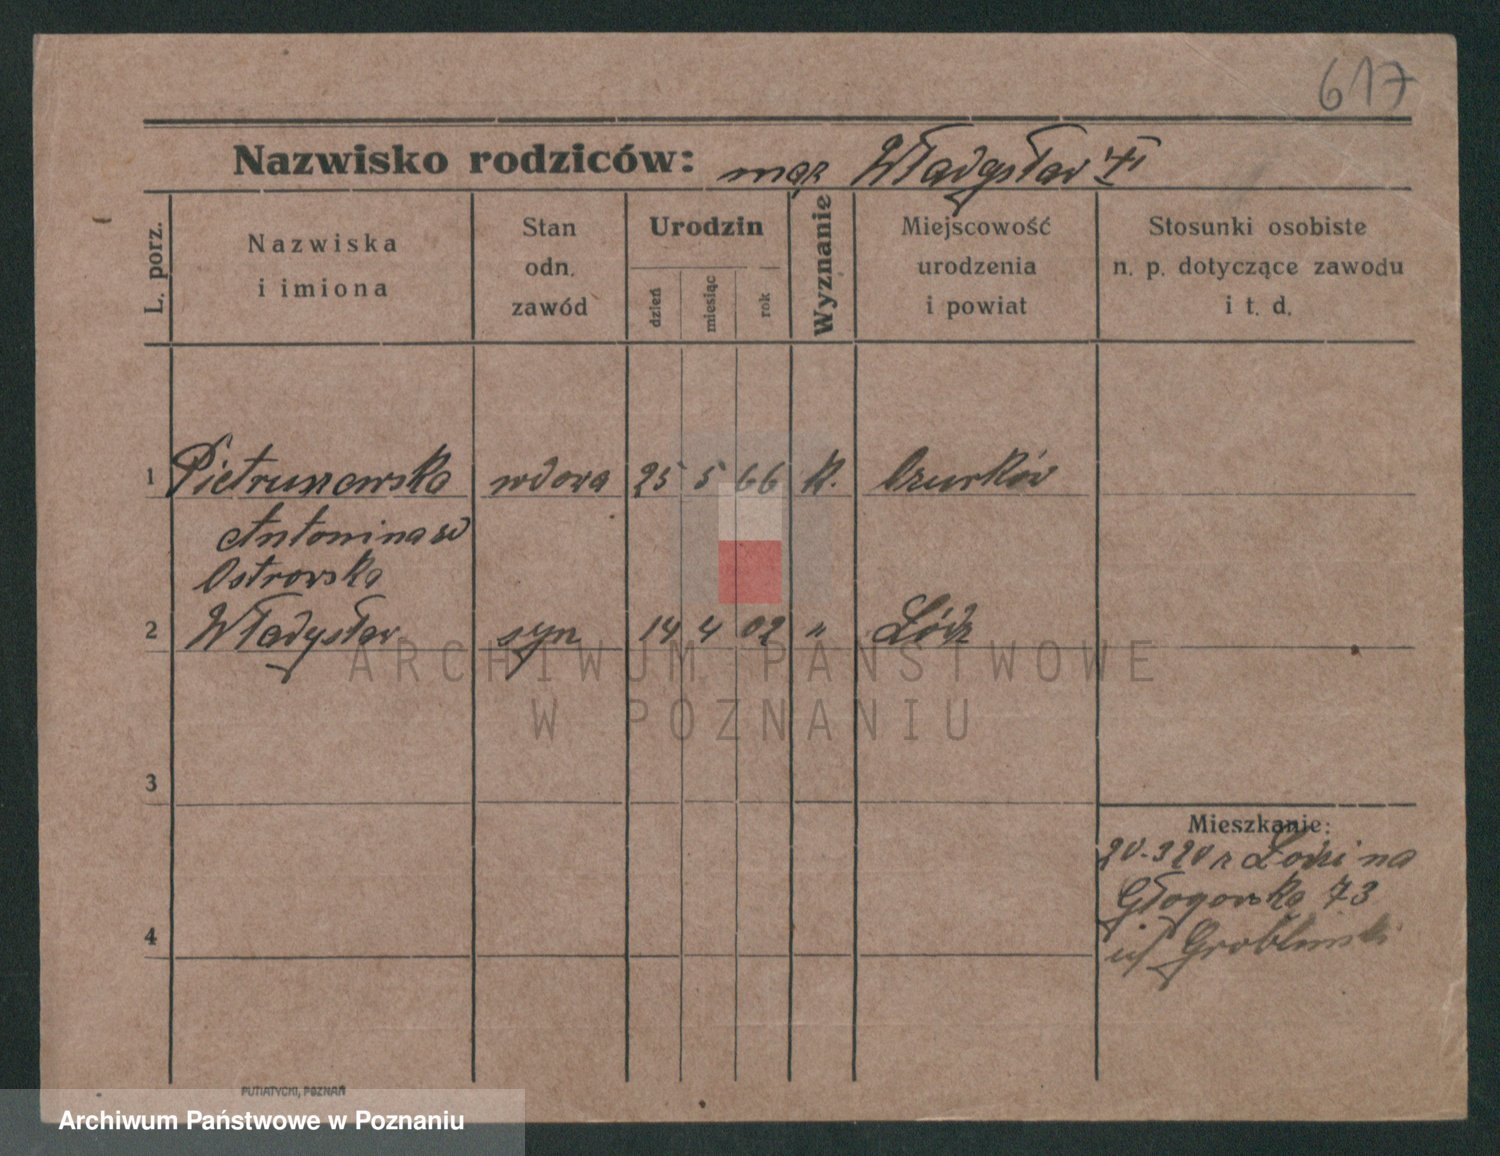 617
Nazwisko rodziców: mąż Władysław
L. porz.
Nazwiska
i imiona
Stan
odn.
zawód
Urodzin
dzień
miesiąc
rok
Wyznanie
Miejscowość
urodzenia
i powiat
Stosunki osobiste
n. p. dotyczące zawodu
i t. d.
1 Pietruszewska wdowa 25 5 66 K. Ozurków
Antonina
Ostrowska
2 Władysław syn 14 4 02 " Łódź
ARCHIWUM PAŃSTWOWE
W POZNANIU
3
Mieszkanie:
20.3 20 z Łodzi na
Głogowska 73
4
PUTIATYCKI, POZNAŃ
Archiwum Państwowe w Poznaniu